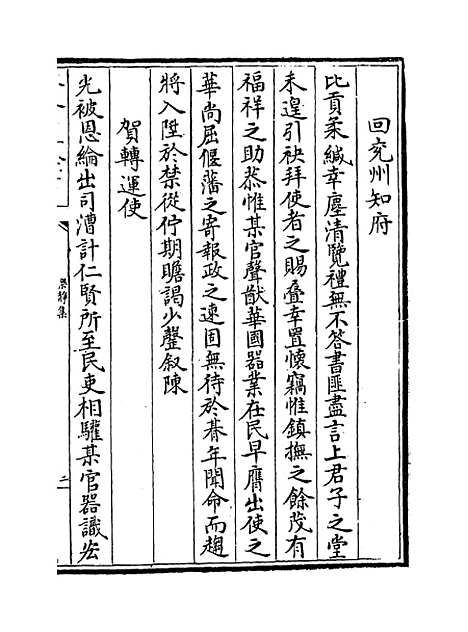 回兖州知府
比貢柔緘幸塵清覽禮無不答書匪盡言上君子之堂
未遑引袂拜使者之賜疊幸置懷竊惟鎮撫之餘茂有
福祥之助恭惟某官聲猷華國器業在民早膺出使之
華尚屈偃藩之寄報政之速固無待於朞年聞命而趨
將入陞於禁從佇期瞻謁少罄叙陳
賀轉運使
光被恩綸出司漕計仁賢所至民吏相驩某官器識宏
二